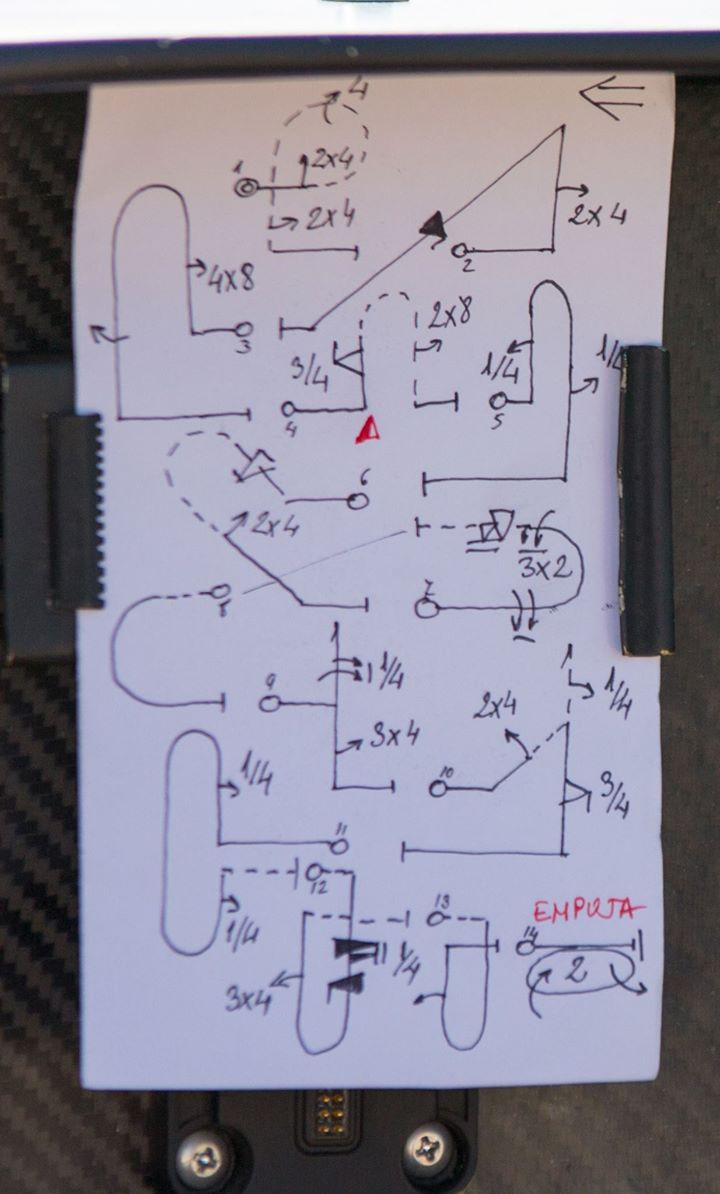 4
1
2x4
2x4
2x4
2
4x8
3
2x8
3/4
1/4
1/4
4
5
6
2x4
3x2
7
8
1
9
1/4
3x4
2x4
10
1
1/4
3/4
1/4
11
12
1/4
13
EMPUJA
14
1/4
2
3x4